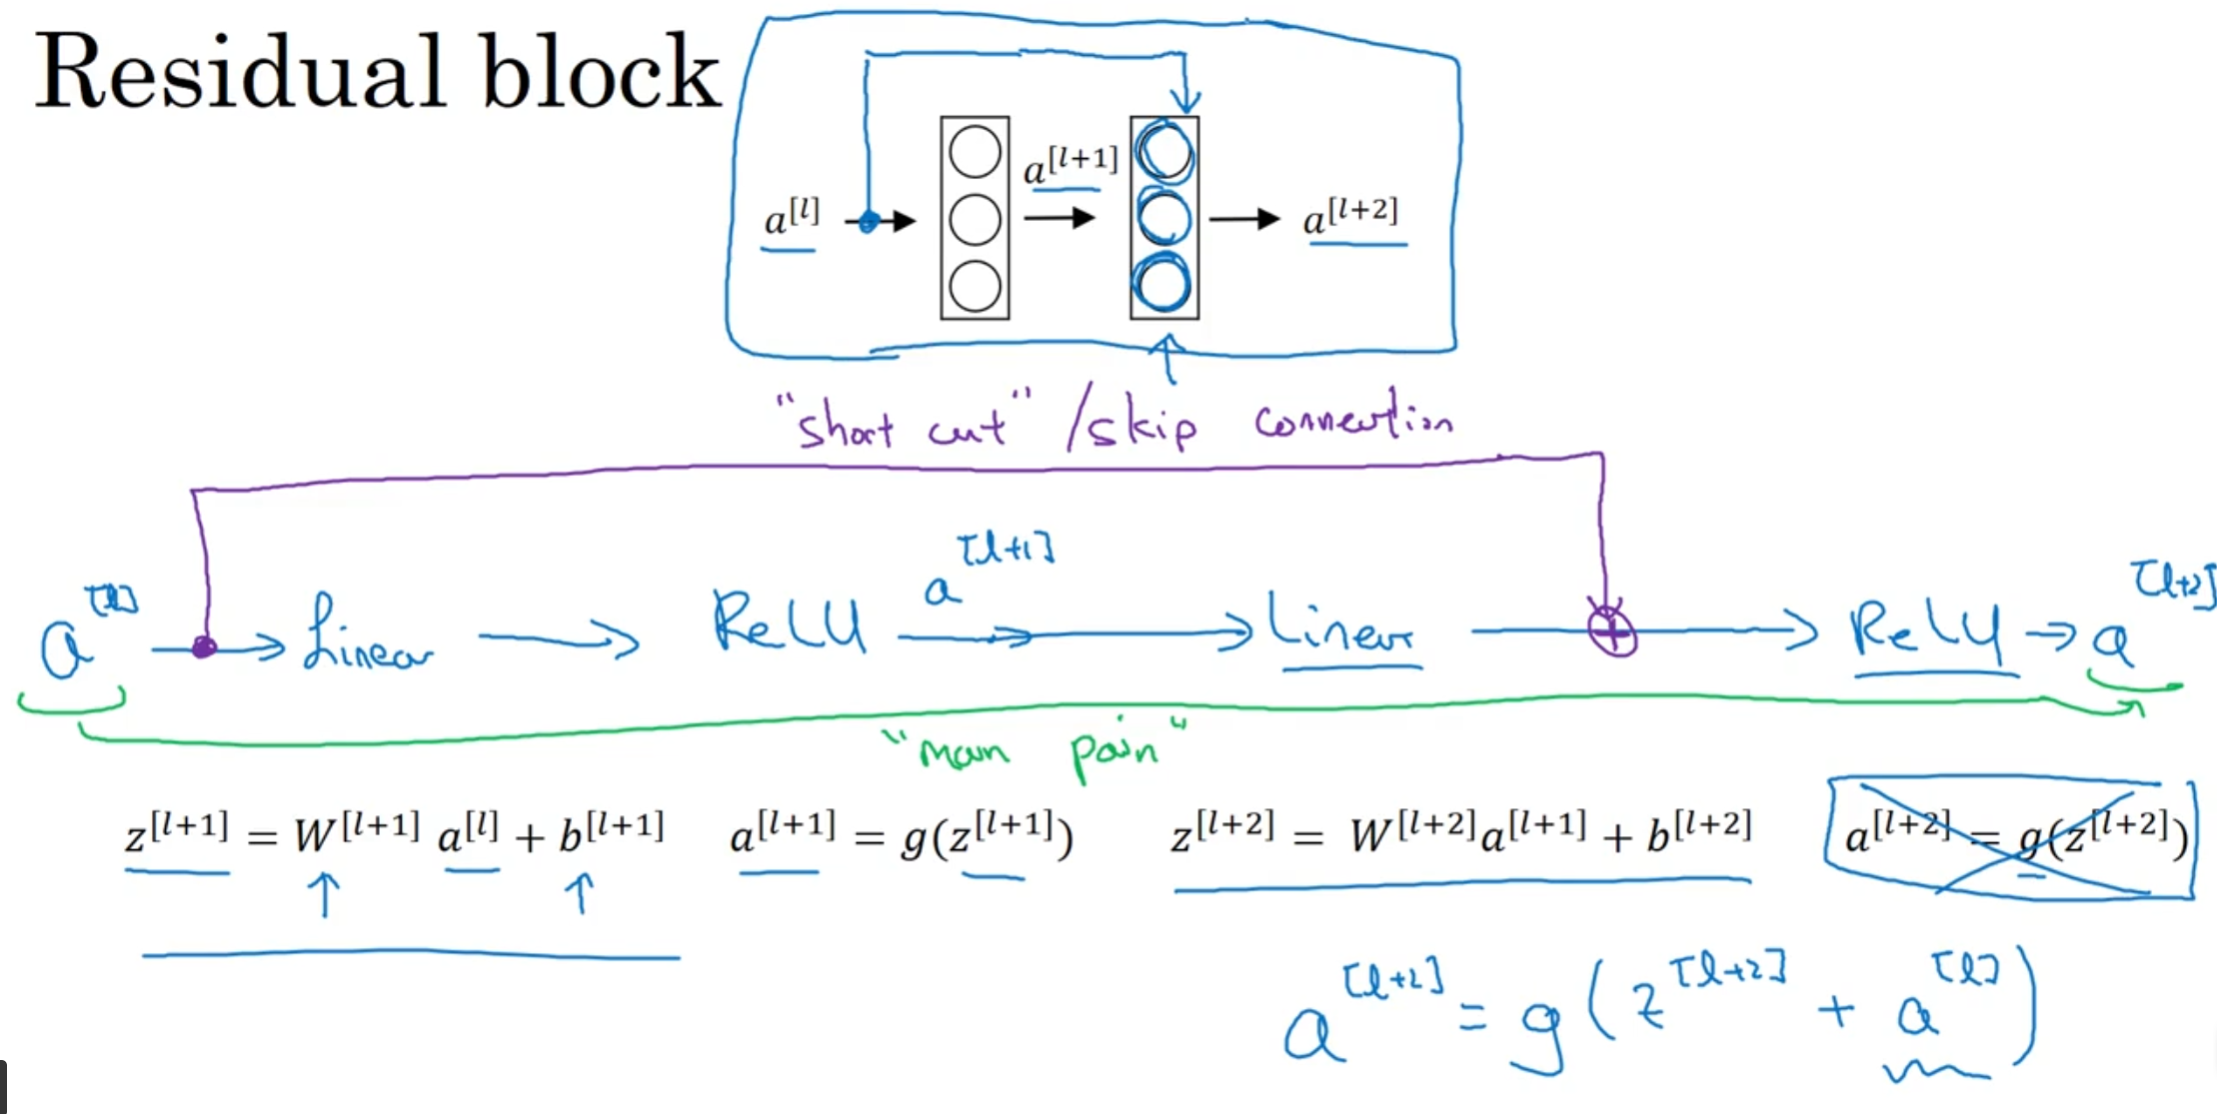 Residual block
a^[l] a^[l+1] a^[l+2]
"short cut" / skip connection
a^[l] → Linear → ReLU a^[l+1] → Linear → + → ReLU → a^[l+2]
"main pain"
z^[l+1] = W^[l+1] a^[l] + b^[l+1] a^[l+1] = g(z^[l+1]) z^[l+2] = W^[l+2] a^[l+1] + b^[l+2] a^[l+2] = g(z^[l+2])
a^[l+2] = g(z^[l+2] + a^[l])